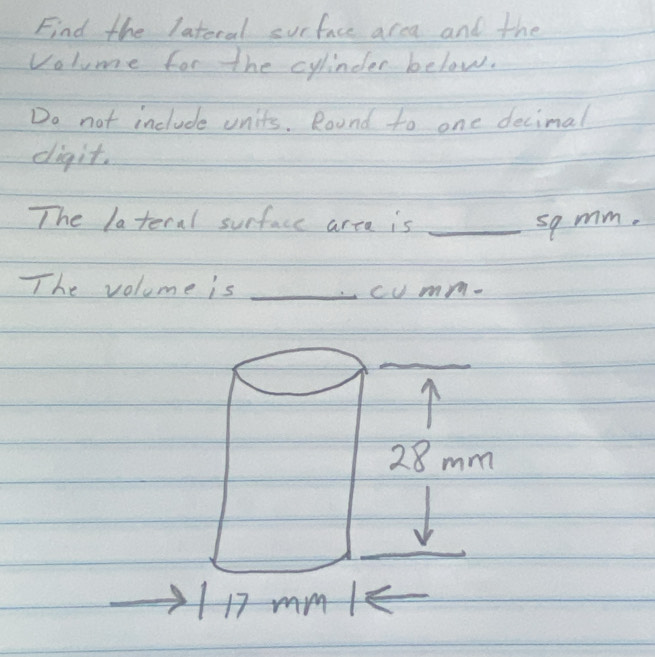 Find the lateral surface area and the
Volume for the cylinder below.
Do not include units. Round to one decimal
digit.
The lateral surface area is ______ sq mm.
The volume is ______ cu mm.
28 mm
17 mm